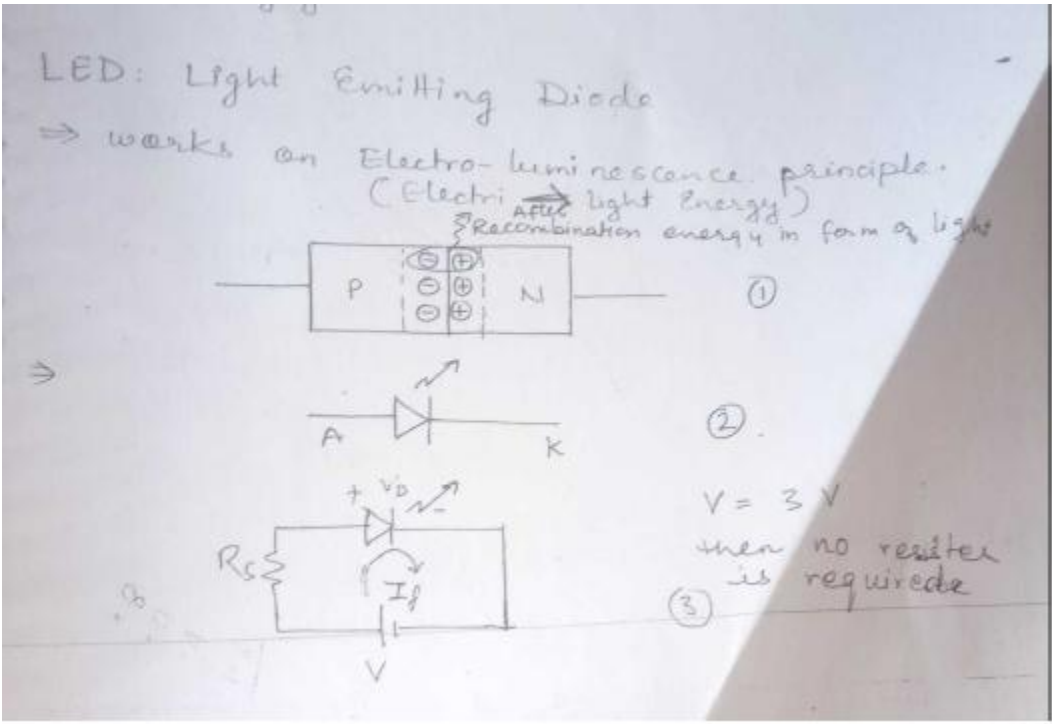 LED: Light Emitting Diode
⇒ works on Electro-luminescence principle.
(Electri ⇒ light Energy)
After
Recombination energy in form of light
P ⊖ ⊕ N ①
⊖ ⊕
⊖ ⊕
⇒
A K ②.
+ VD -
V = 3 V
then no resiter
Rs If is requirede
③
V